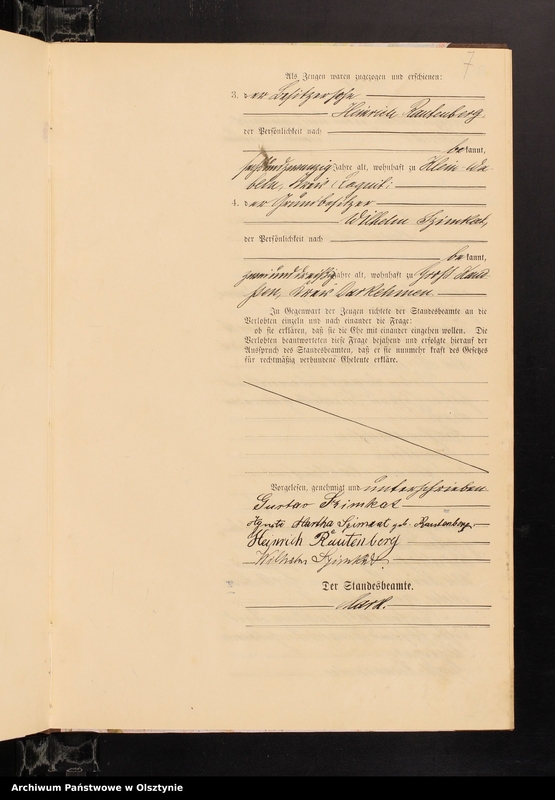 7
Als Zeugen waren zugezogen und erschienen:
3. der Besitzersohn
Heinrich Rautenberg
der Persönlichkeit nach
bekannt,
sechsundzwanzig Jahre alt, wohnhaft zu Klein-
Kreis
4. der Grundbesitzer
Wilhelm Szimkat,
der Persönlichkeit nach
bekannt,
zweiunddreißig Jahre alt, wohnhaft zu Groß
Kreis Darkehmen
In Gegenwart der Zeugen richtete der Standesbeamte an die
Verlobten einzeln und nach einander die Frage:
ob sie erklären, daß sie die Ehe mit einander eingehen wollen. Die
Verlobten beantworteten diese Frage bejahend und erfolgte hierauf der
Ausspruch des Standesbeamten, daß er sie nunmehr kraft des Gesetzes
für rechtmäßig verbundene Eheleute erkläre.
Vorgelesen, genehmigt und unterschrieben
Gustav Szimkat
Martha Szimkat geb. Rautenberg
Heinrich Rautenberg
Wilhelm Szimkat.
Der Standesbeamte.
Archiwum Państwowe w Olsztynie